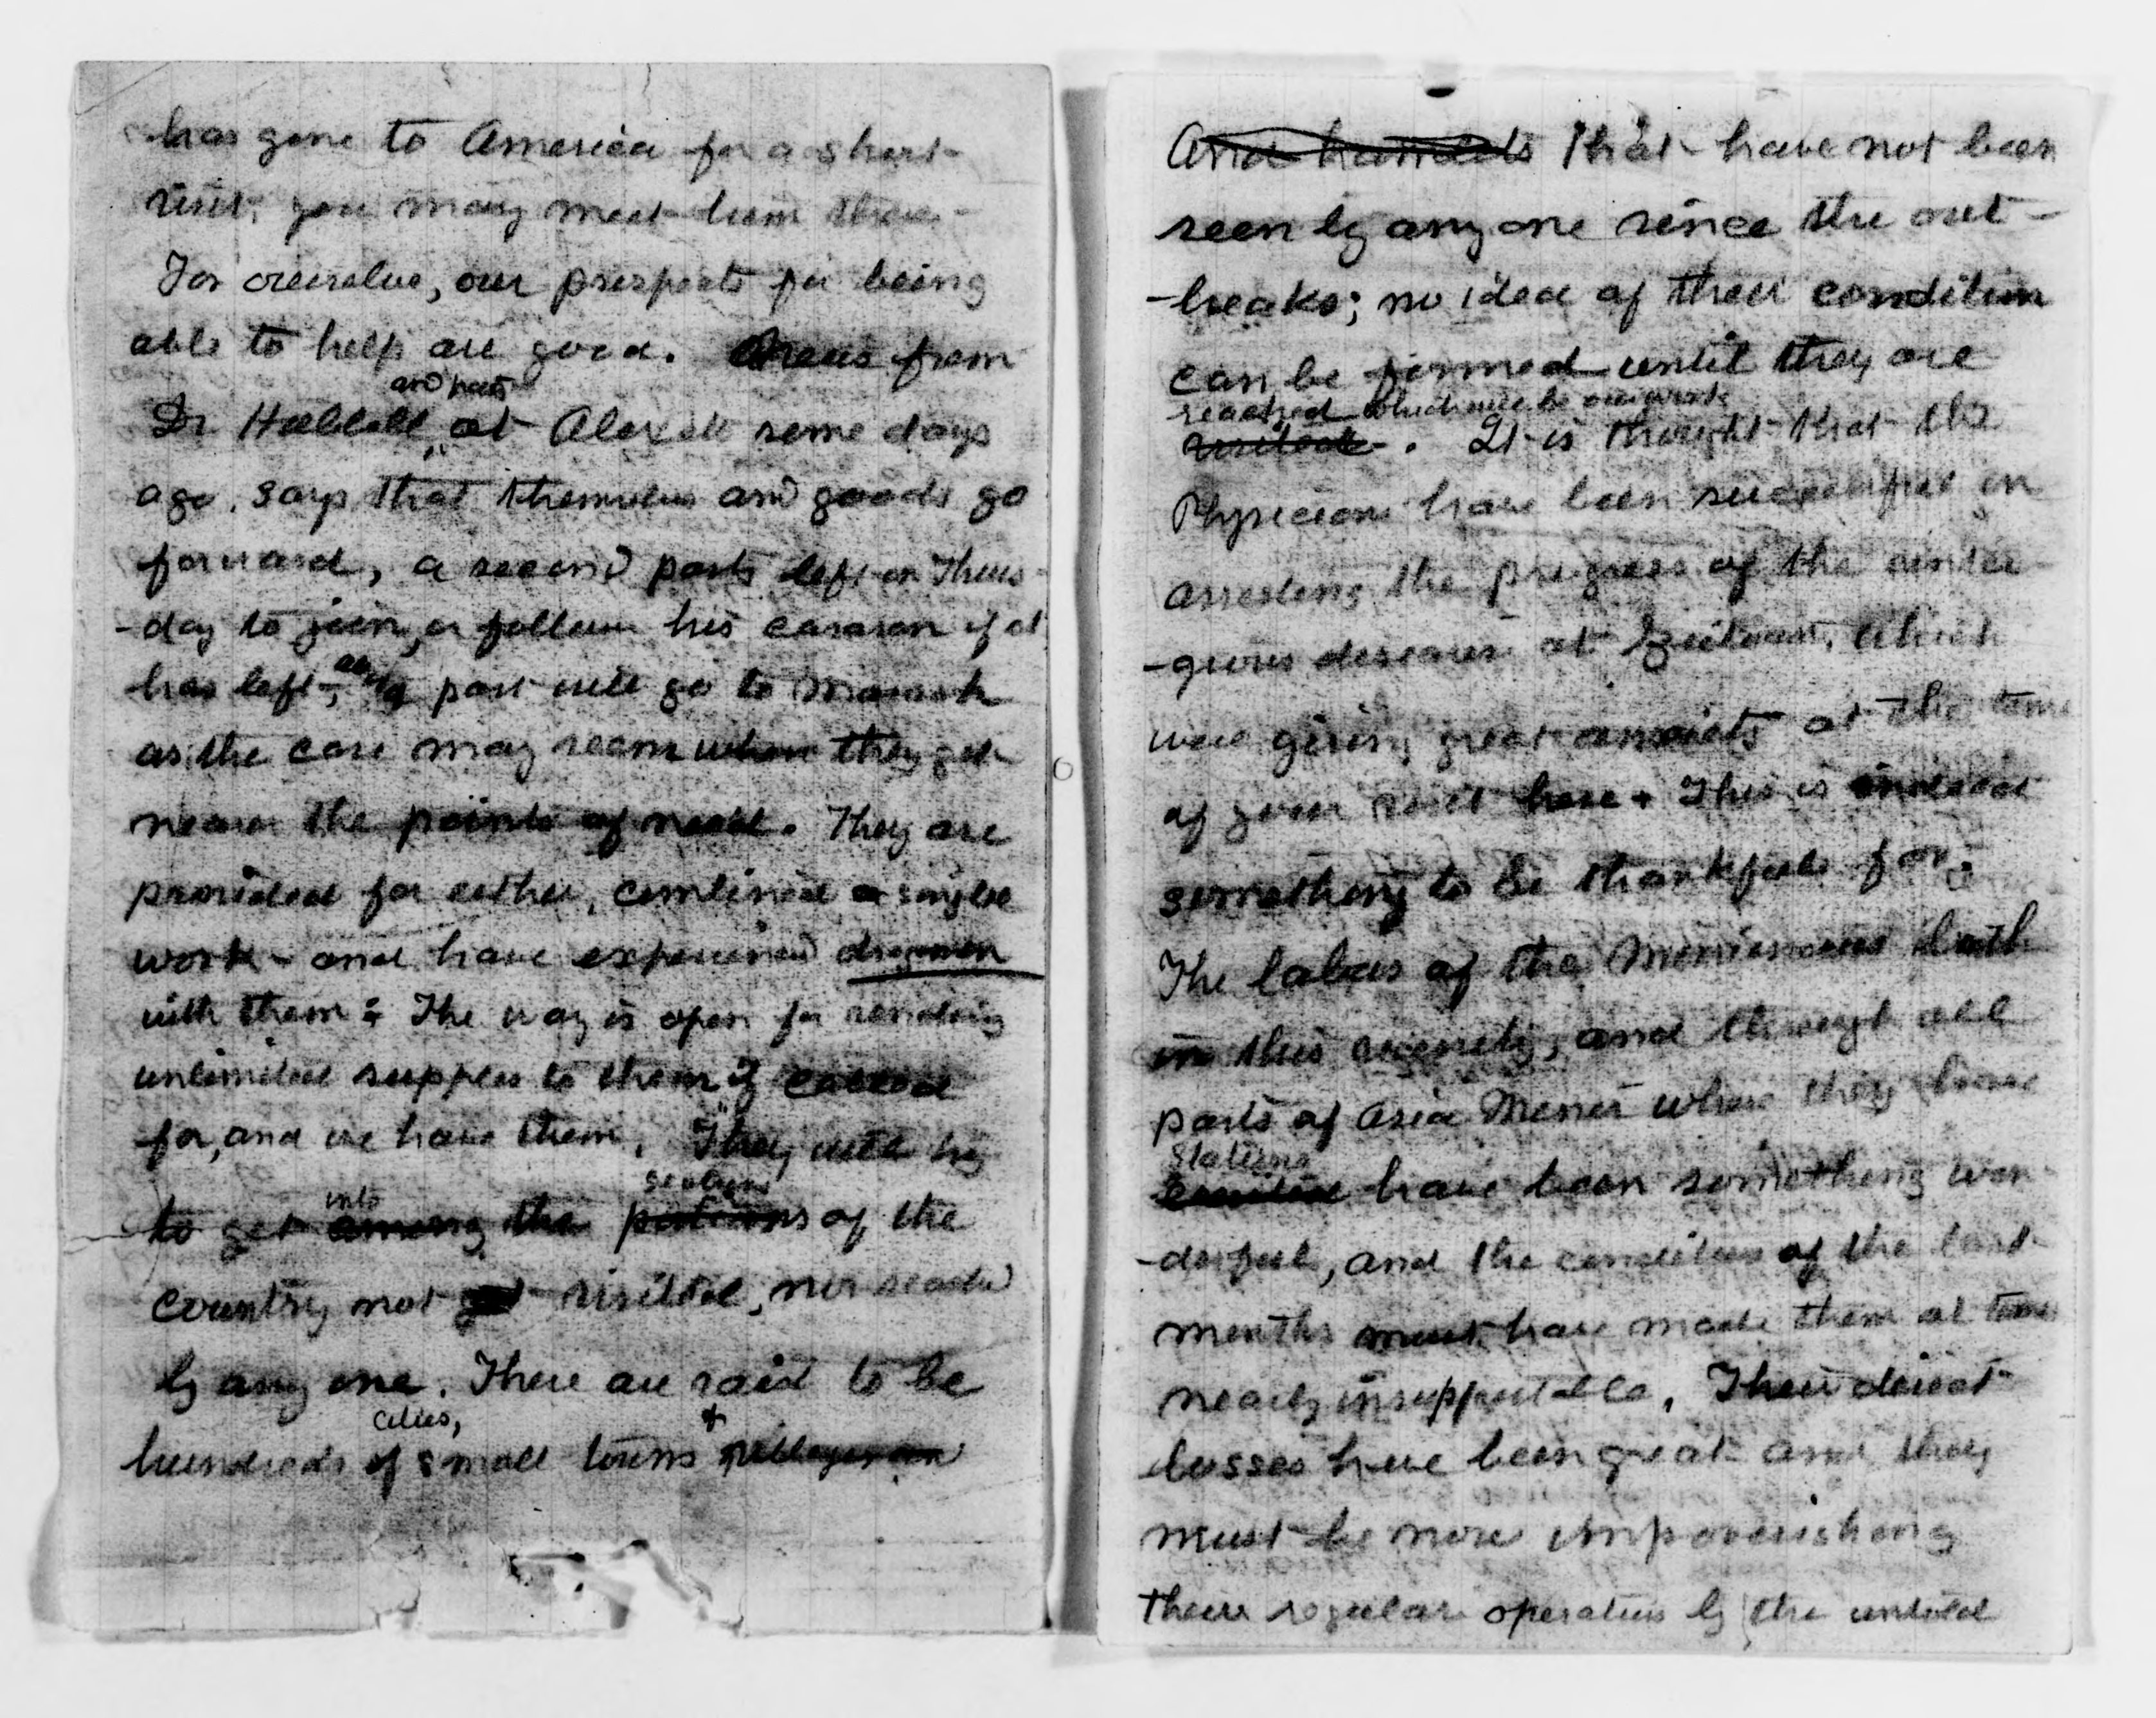 has gone to America for a short
visit, you may meet him there -
For ourselves, our prospects for being
able to help are good. News from
and party
Dr Hubbell, at Alexdtt some days
ago, says that themselves and goods go
forward, a second party left on Thurs-
-day to join, or follow his caravan if it
has left, a part will go to Marash
as the case may seem when they get
nearer the points of need. They are
provided for either, combined or single
work - and have experienced dragomen
with them. The way is open for sending
unlimited supplies to them if called
for, and we have them. They will try
into sections
to get among the portions of the
country not got visited, nor reached
by any one. There are said to be
cities, &
hundreds of small towns villages and
And hamlets that have not been
seen by any one since the out-
-breaks; no idea of their condition
can be formed until they are
reached which will be our work
visited. It is thought that the
Physicians have been successful in
arresting the progress of the
diseases at Zeitoun, which
were giving great anxiety at the time
of your visit here. This is indeed
something to be thankful for.
The labors of the Missionaries both
in this vicinity, and through all
parts of Asia Minor where they have
Stations
have been something won-
-derful, and the condition of the last
months must have made them at times
nearly insupportable. Their direct
losses have been great and they
must be now impoverishing
their regular operations by the untold